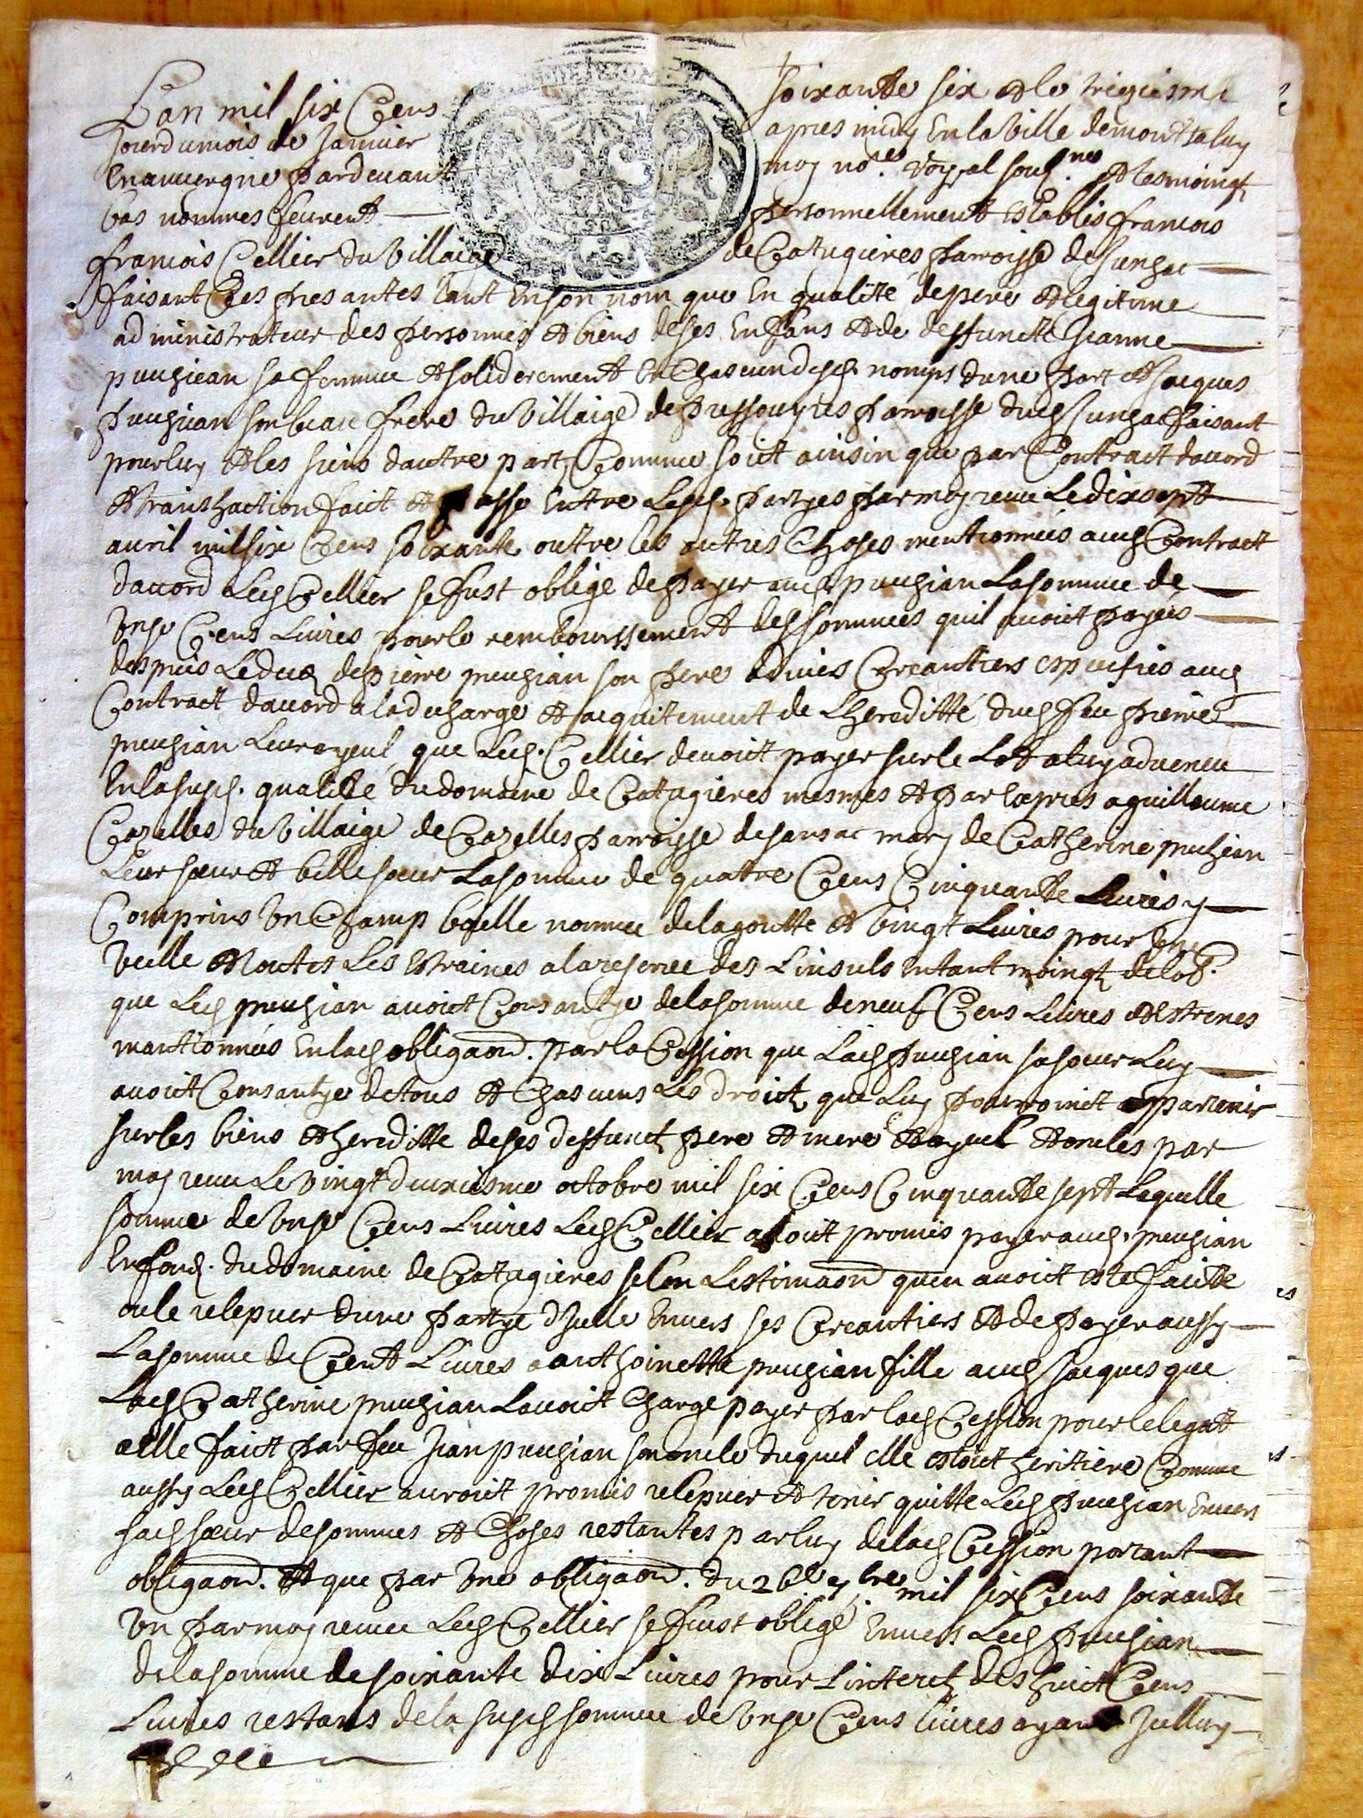 L'an mil six Cens soixante six et le triziesme
jour du mois de Janvier apres midy En la Ville de montsaluy
En auuergne Pardeuant moy no.re Royal soub.ne et tesmoingz
bas nommes feurent personnellement establis francois
francois Cellier du Villaige de Catugieres parroisse de sunhac
faisant Ces presantes tant En son nom que En qualite de pere et legitime
administrateur des personnes et biens de ses Enfans et de deffuncte Jeanne
puechian sa femme et soliderement En Chascun desd. noms d'une part et Jacques
Puechian son beau frere du Villaige de pressouyres parroisse dud. sunhac faisant
pour luy et les siens d'autre part Comme soict ainsin que par Contraict d'accord
et transhaction faict et passe Entre lesd. partyes par moy receu Le dixsept
auril mil six Cens soixante outre les autres Choses mentionnees aud. Contract
d'accord Led. Cellier se fust oblige de payer aud. puechian La somme de
Unse Cens Liures pour le remboursement des sommes quil auoict payees
despuis Le deces de pierre puechian son pere a diuers Creantiers especifies aud.
Contract d'accord a la descharge et acquitement de L'hereditté dud. feu pierre
puechian Leur ayeul, que Led. Cellier deuoict payer sur le Lot a luy aduenu
En la susd. qualité du domaine de Catugieres mesmes et par expres a guilleaume
Cazelles du Villaige de Cazelles parroisse de sansac mary de Catherine puechian
Leur soeur et belle soeur La somme de quatre Cens Cinquante Liures y
Comprins Un Champ bpelle nomme de la goutte et Vingt Liures pour Une
Velle et toutes Les estraines a la reserue des Linsuls En tant moingz de la d.
que Led. puechian auoict Consantye de la somme de neuf Cens Liures et estrenes
mantionnees En lad. obligaon. par la Cession que Lad. puechian sa soeur Luy
auoict Consantye de tous et Chascuns Les droictz que Luy pourroinct appartenir
sur les biens et hereditte de ses deffunctz pere et mere et ayeul et oncles par
moy receu Le Vingt deuxiesme octobre mil six Cens Cinquante sept Laquelle
somme de Unse Cens Liures Led. Cellier auoit promis payer aud. puechian
En fond. du domaine de Catugieres selon L'estimaon quen auoict esté faicte
ou le releuer d'une partye d'Icelle Enuers ses Creantiers et de payer aussy
La somme de Cent Liures a anthoinette puechian fille aud. Jacques que
Lad. Catherine puechian L'auoict Charge payer par lad. Cession pour le legat
a elle faict par feu Jean puechian son oncle duquel elle estoict heritiere Comme
aussy Led. Cellier auroit promis releuer et tenir quitte Led. puechian Enuers
sad. soeur de sommes et Choses restantes par luy de lad. Cession portant
obligaon. et que par Une obligaon. du 26e 7bre mil six Cens soixante
Un par moy receue Led. Cellier se fust obligé Enuers Led. puechian
de la somme de soixante dix Liures pour L'interetz des huict Cens
Liures restans de la susd. somme de Unse Cens liures ayant Icelluy